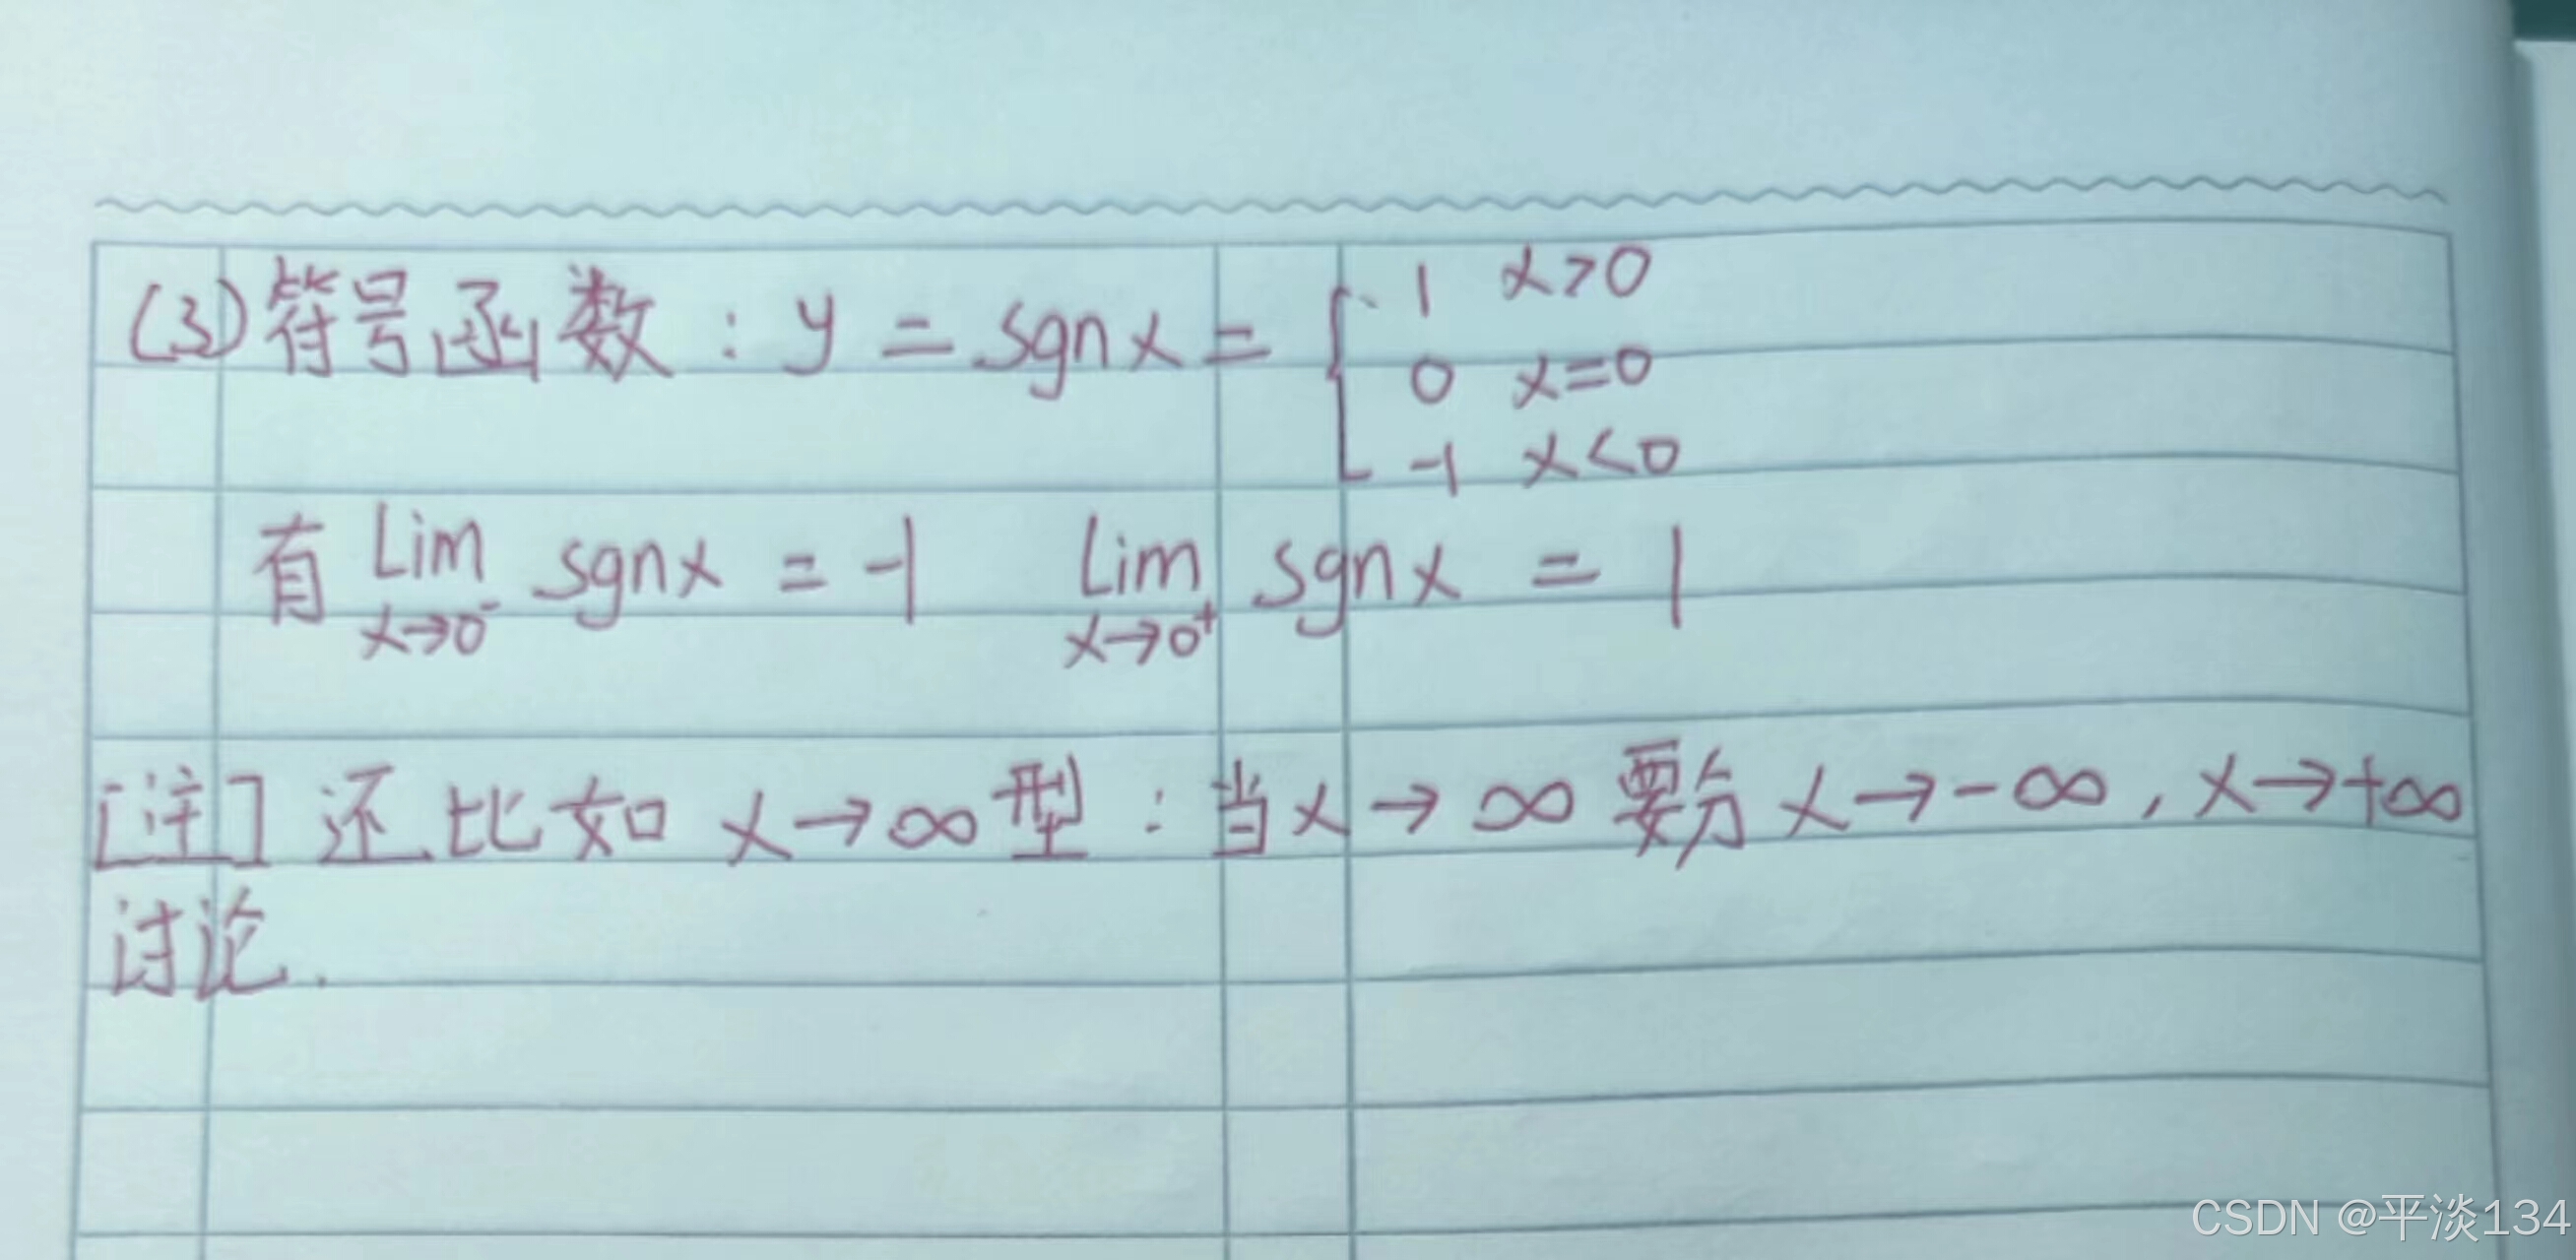 (3)符号函数：y = sgnx = { 1 x>0
0 x=0
-1 x<0
有 Lim sgnx = -1 Lim sgnx = 1
x→0⁻ x→0⁺
[注] 还比如 x→∞型：当x→∞要分x→-∞，x→+∞
讨论.
CSDN @平淡134